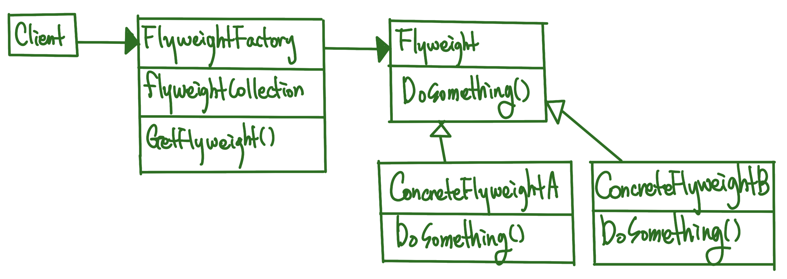 Client
FlyweightFactory
flyweightCollection
GetFlyweight()
Flyweight
DoSomething()
ConcreteFlyweightA
DoSomething()
ConcreteFlyweightB
DoSomething()